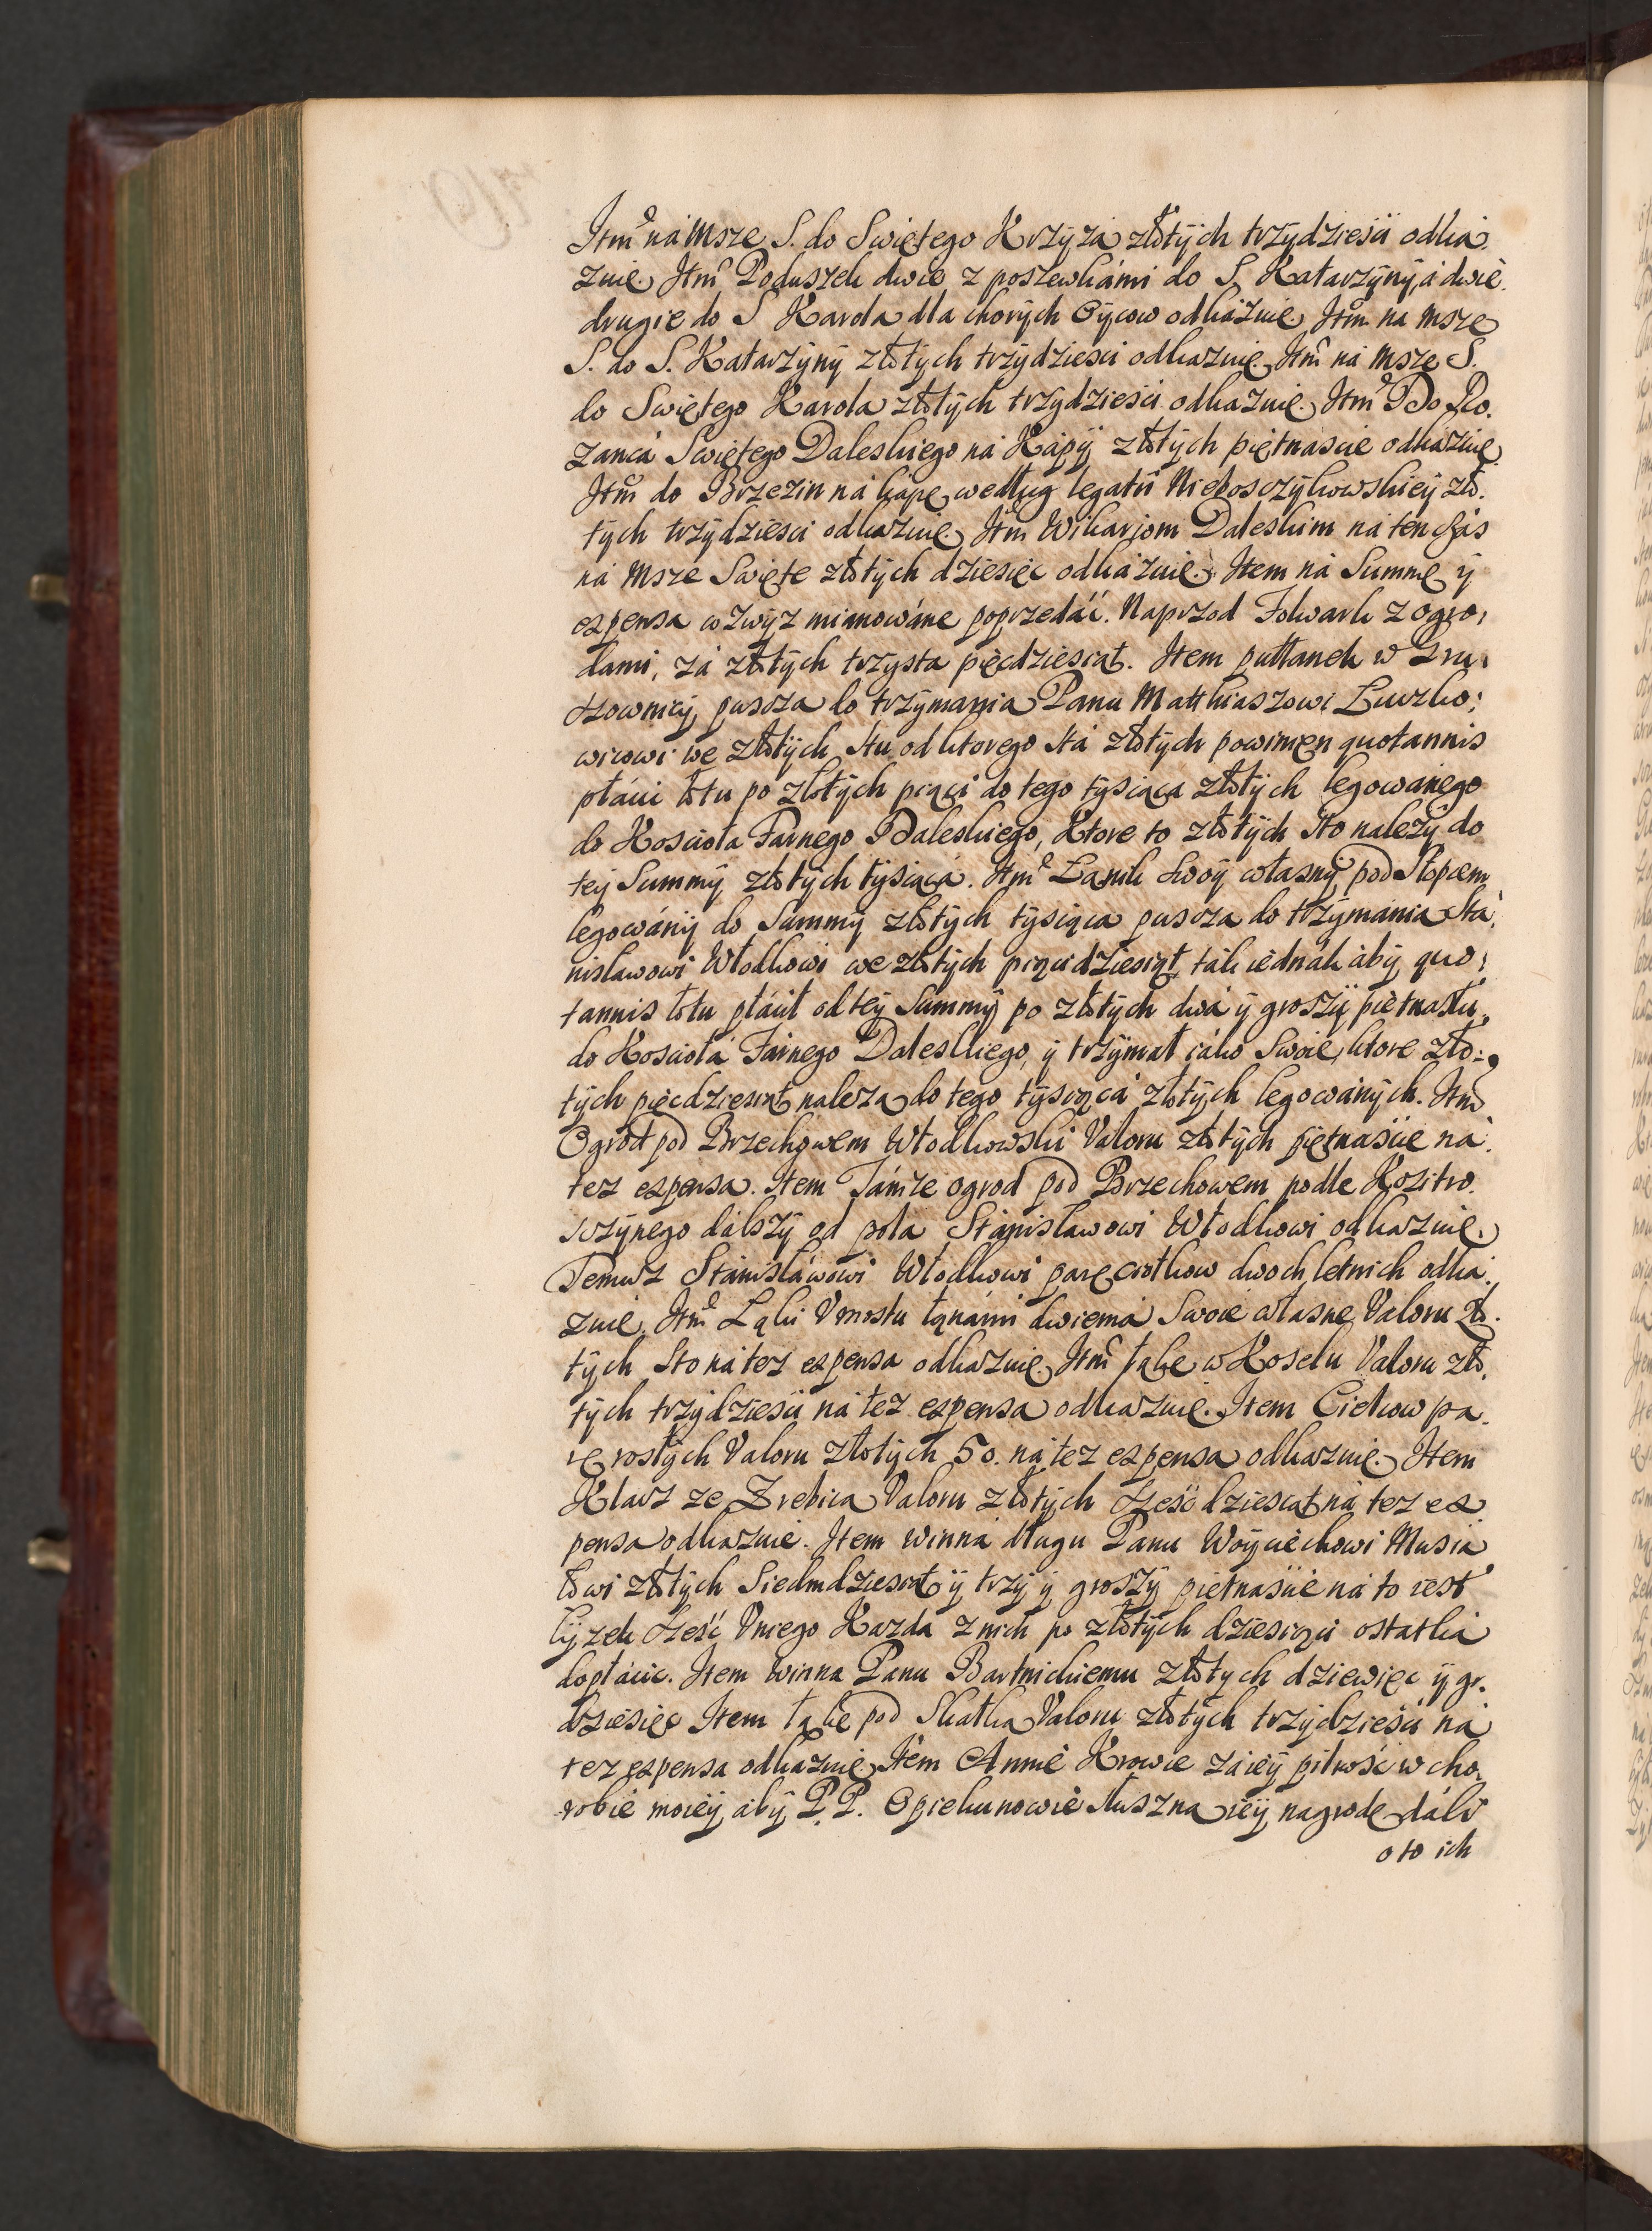 Itm̃ ná Msze S. do Swiętego Krzyzá złotych trzydzieści odka
zuię. Itm̃ Poduszek dwie z poszewkámi do S. Katarzyny, á dwie
drugie do S Karola dla chorych Oycow odkázuię. Itm̃ na Msze
S. do S. Katarzyny złotych trzydzieści odkazuię. Itm̃ ná Msze S.
do Swiętego Karola złotych trzydzieści odkazuię. Itm̃ Do Ro
zancá Swiętego Daleskiego ná Kápy złotych piętnaście odkázuię.
Itm̃ do Brzezin ná kápę według legátu Niebosczykowskiey zło
tych trzydziesci odkazuię. Itm̃ Wikariom Daleskim ná ten czás
ná Msze Swięte złotych dziesięc odkázuię. Item ná Summę y
expensa wzwyz mianowáne poprzedáć. Naprzod Folwark z ogro
dami, zá złotych trzysta pięcdziesiąt. Item pułłanek w
puscza do trzymania Panu Matthiaszowi Luczko
wicowi we złotych stu, od ktorego stá złotych powinien quotannis
płácić po złotych piąci do tego tysiąca złotych legowánego
do Kościoła Farnego Daleskiego, Ktore to złotych sto nalezy do
tey Summy złotych tysiącá. Itm̃ Łanik swoy własny pod
legowány do Summy złotych tysiąca puscza do trzymania Stá
nisławowi Włodkowi we złotych piąćidziesiąt, ták iednák áby quo
tannis płácił od tey Summy po złotych dwá y groszy piętnastu
do Kosciołá Fárnego Daleskiego, y trzymał iáko Swoie, ktore zło
tych pięcdziesiąt naleza do tego tysiącá złotych legowánych. Itm̃
Ogrod pod Brzechowem Włodkowski Valoru złotych piętnaście ná
tez expensa. Item Támze ogrod pod Brzechowem podle
dálszy od pola Stánisławowi Włodkowi odkazuię.
Temusz Stánisłáwowi Włodkowi parę ciołkow dwoch letnich odka
zuię. Itm̃ Łąki V mostu łąnámi dwiemá Swoie własne Valoru zło
tych Sto ná tez expensa odkazuię. Itm̃ łąkę w Koselu Valoru zło
tych trzydzieści ná tez expensa odkazuię. Item Ciekow pa
rę rosłych Valoru złotych 50. ná tez expensa odkazuię. Item
Klacz ze Zrebica Valoru złotych szesćdziesiat ná tez ex
pensa odkazuię. Item winná długu Panu Woyciechowi Musia
łowi złotych Siedmdziesiąt y trzy y groszy piętnaście ná to iest
łyzek sześć Vniego Kazda z nich po złotych dziesiąci ostatka
dopłácić. Item winna Panu Bartnickiemu złotych dziewięc y gr.
dziesięc Item łąkę pod Skałka Valoru złotych trzydzieści ná
tez expensa odkazuię. Item Annie Krowie zá iey pilność w cho
robie moiey áby P.P. Opiekunowie słuszna iey nagrodę dáli
o to ich